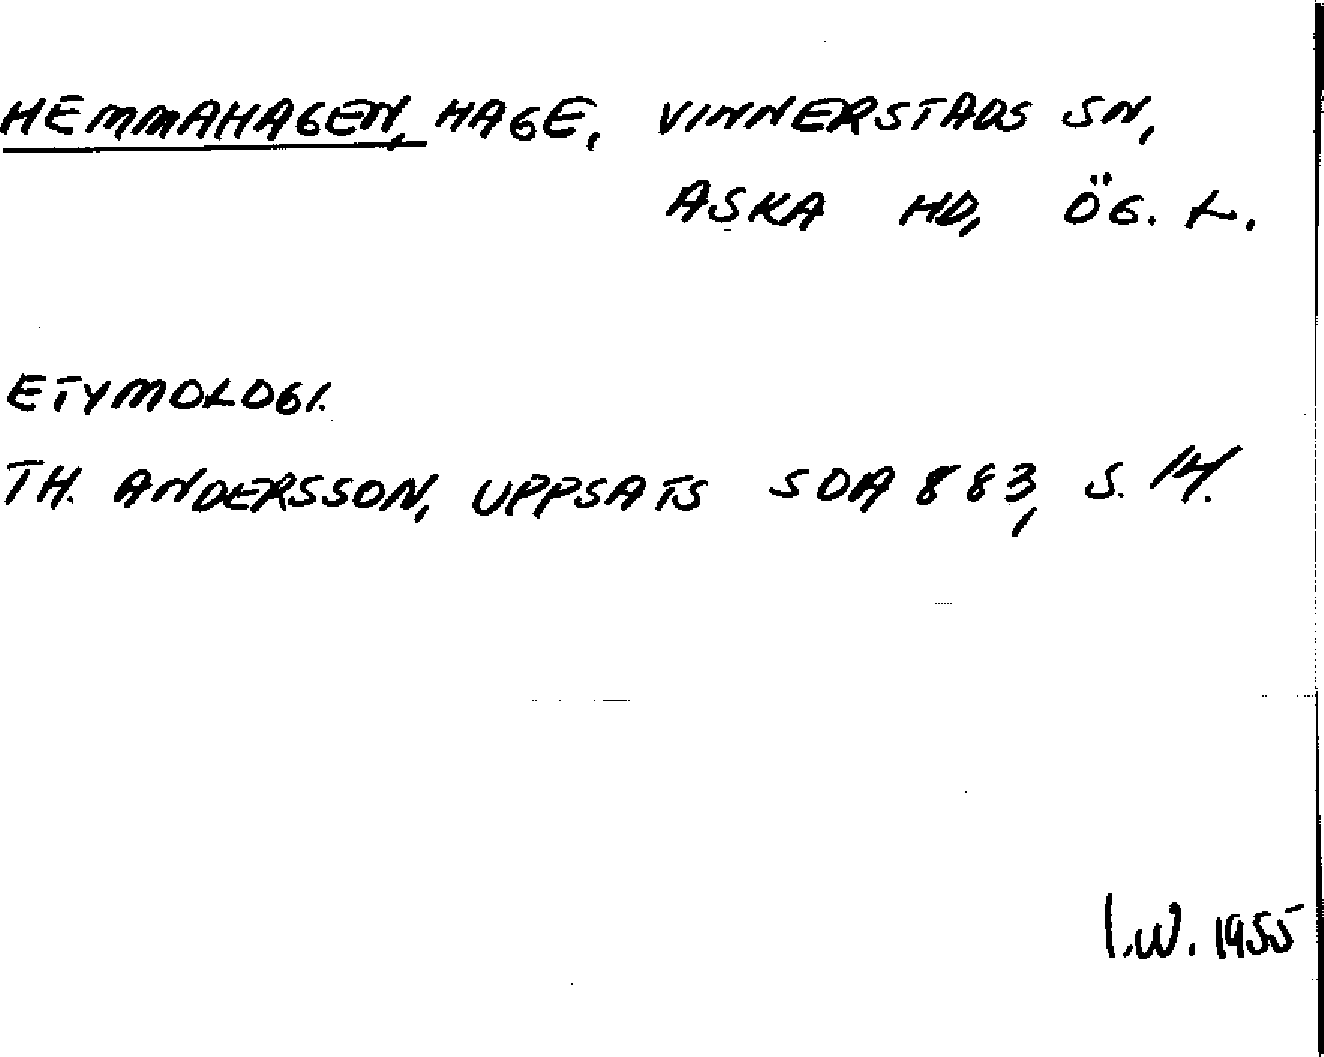 HEMMAHAGEN, HAGE, VINNERSTADS SN,
ASKA HD, ÖG. L.
ETYMOLOGI.
TH. ANDERSSON, UPPSATS SOA 883, S. 14.
I.W. 1955